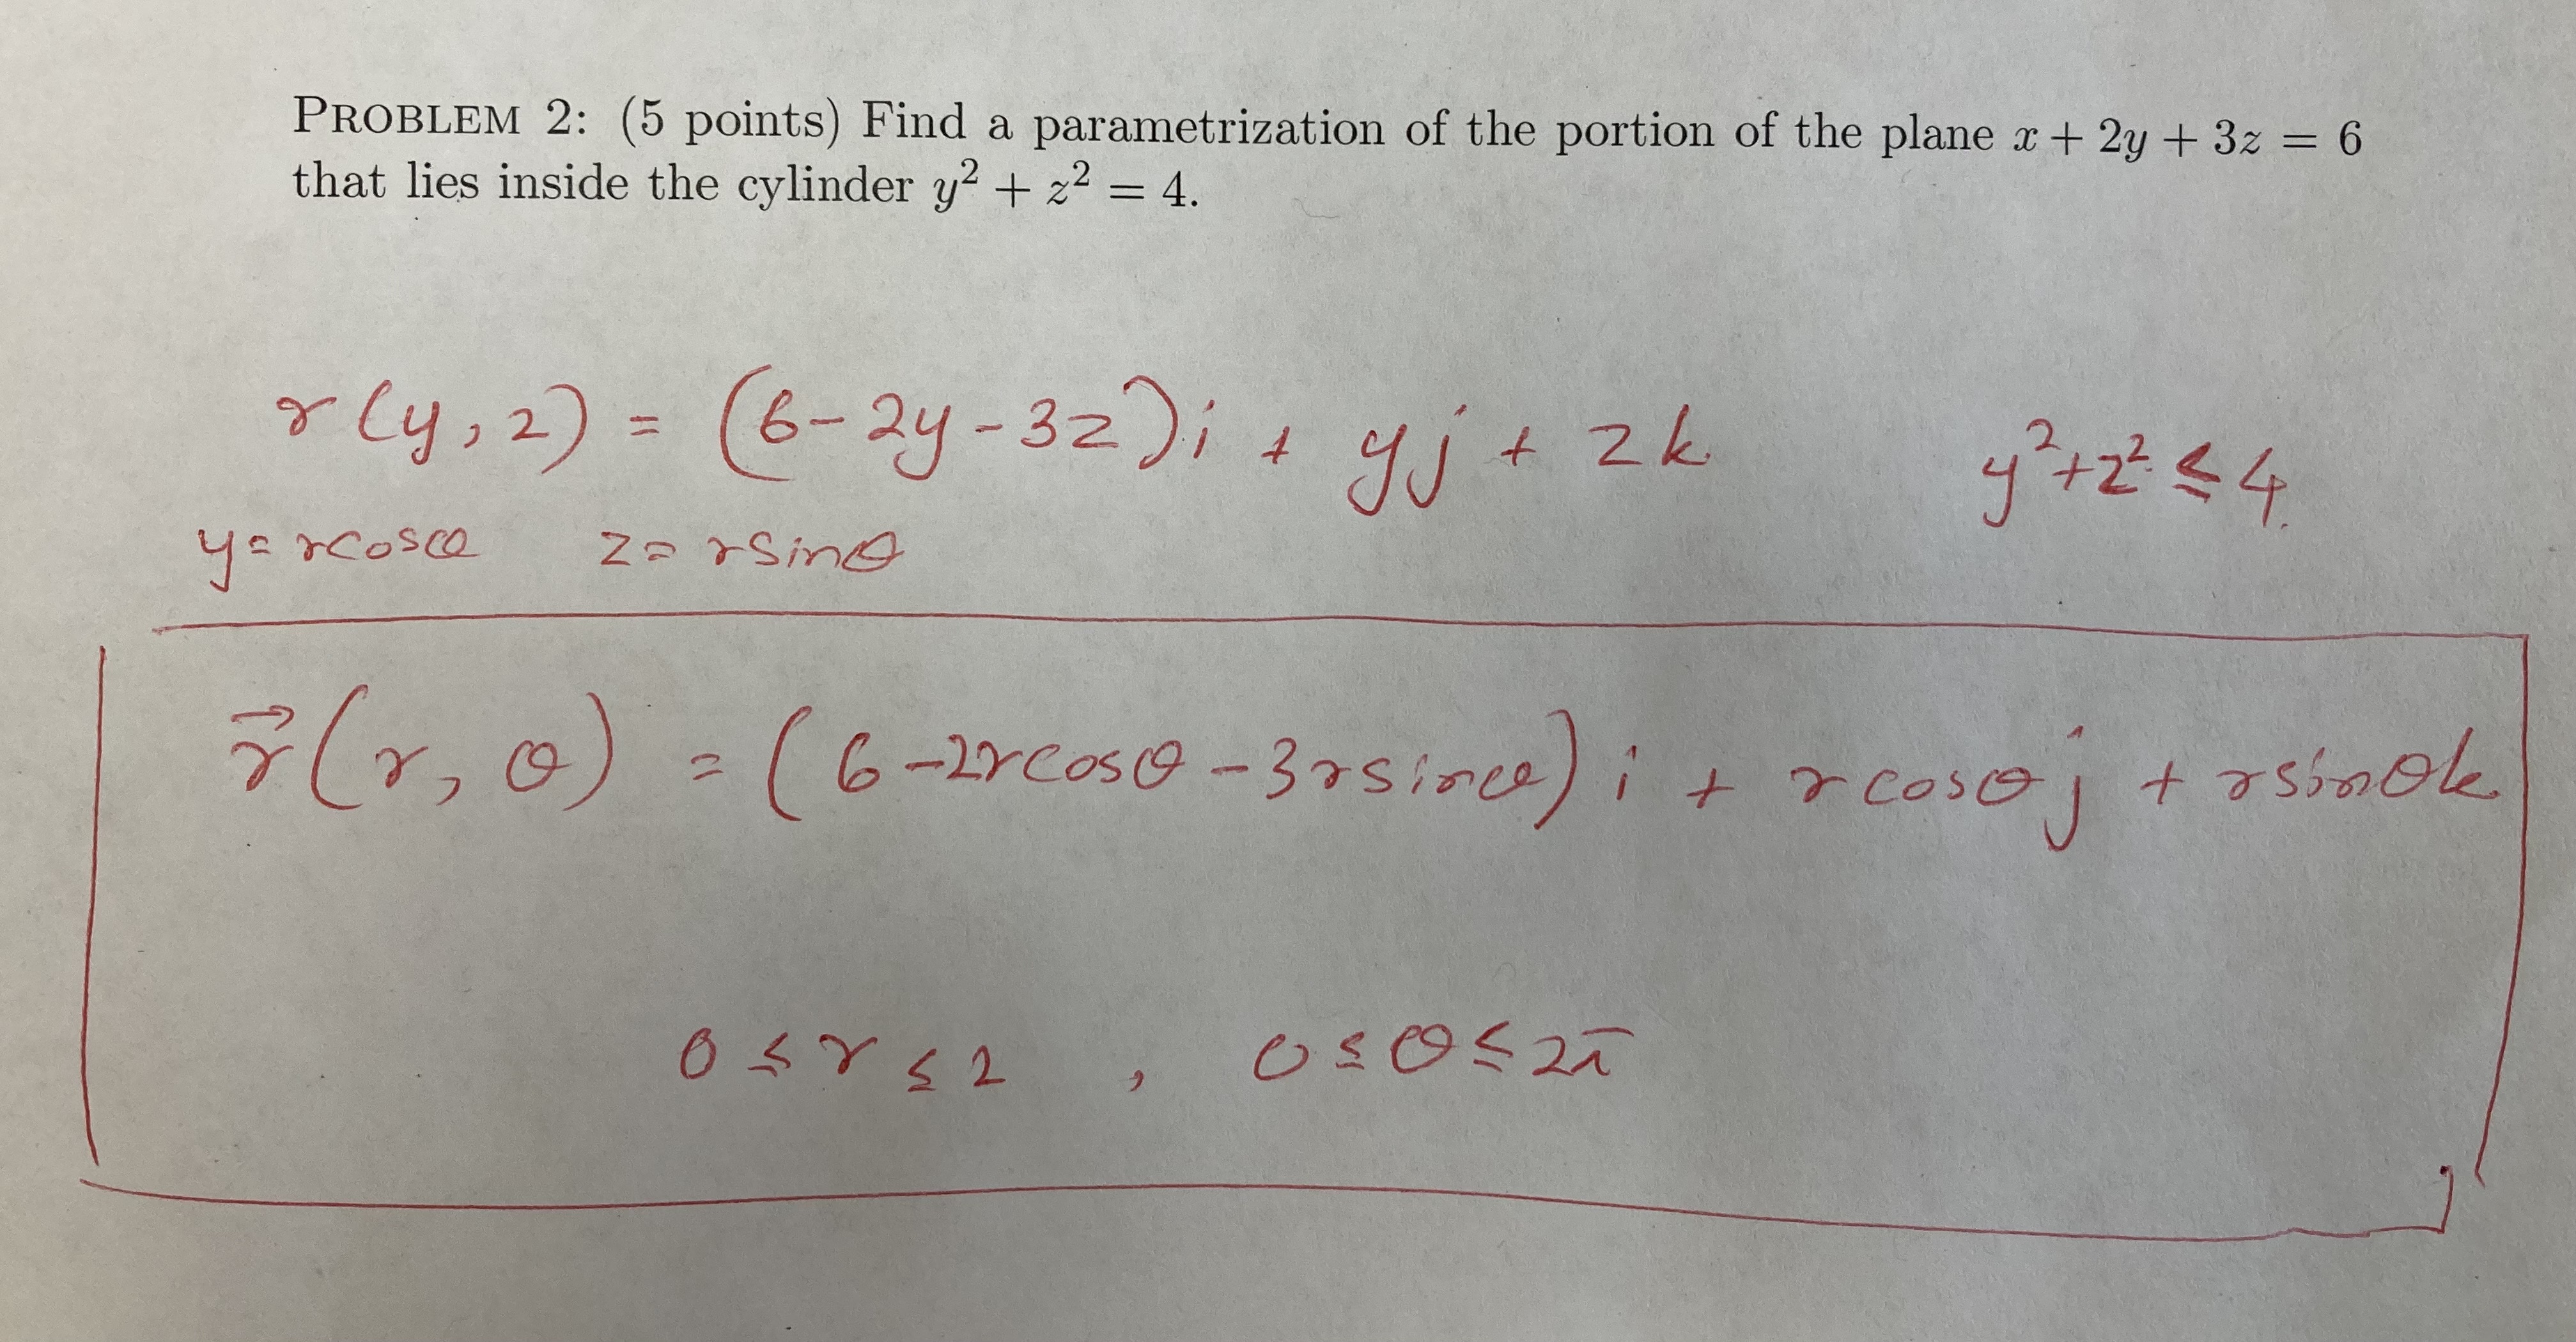 PROBLEM 2: (5 points) Find a parametrization of the portion of the plane x + 2y + 3z = 6
that lies inside the cylinder y² + z² = 4.
r(y, z) = (6-2y-3z)i + yj + zk y²+z² ≤ 4.
y = rcosθ z = rsinθ
r⃗(r, θ) = (6-2rcosθ-3rsinθ)i + rcosθj + rsinθk
0 ≤ r ≤ 2 , 0 ≤ θ ≤ 2π